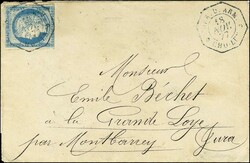 Monsieur
Emile Béchet
à la Grande Loye
par Montbarrey Jura